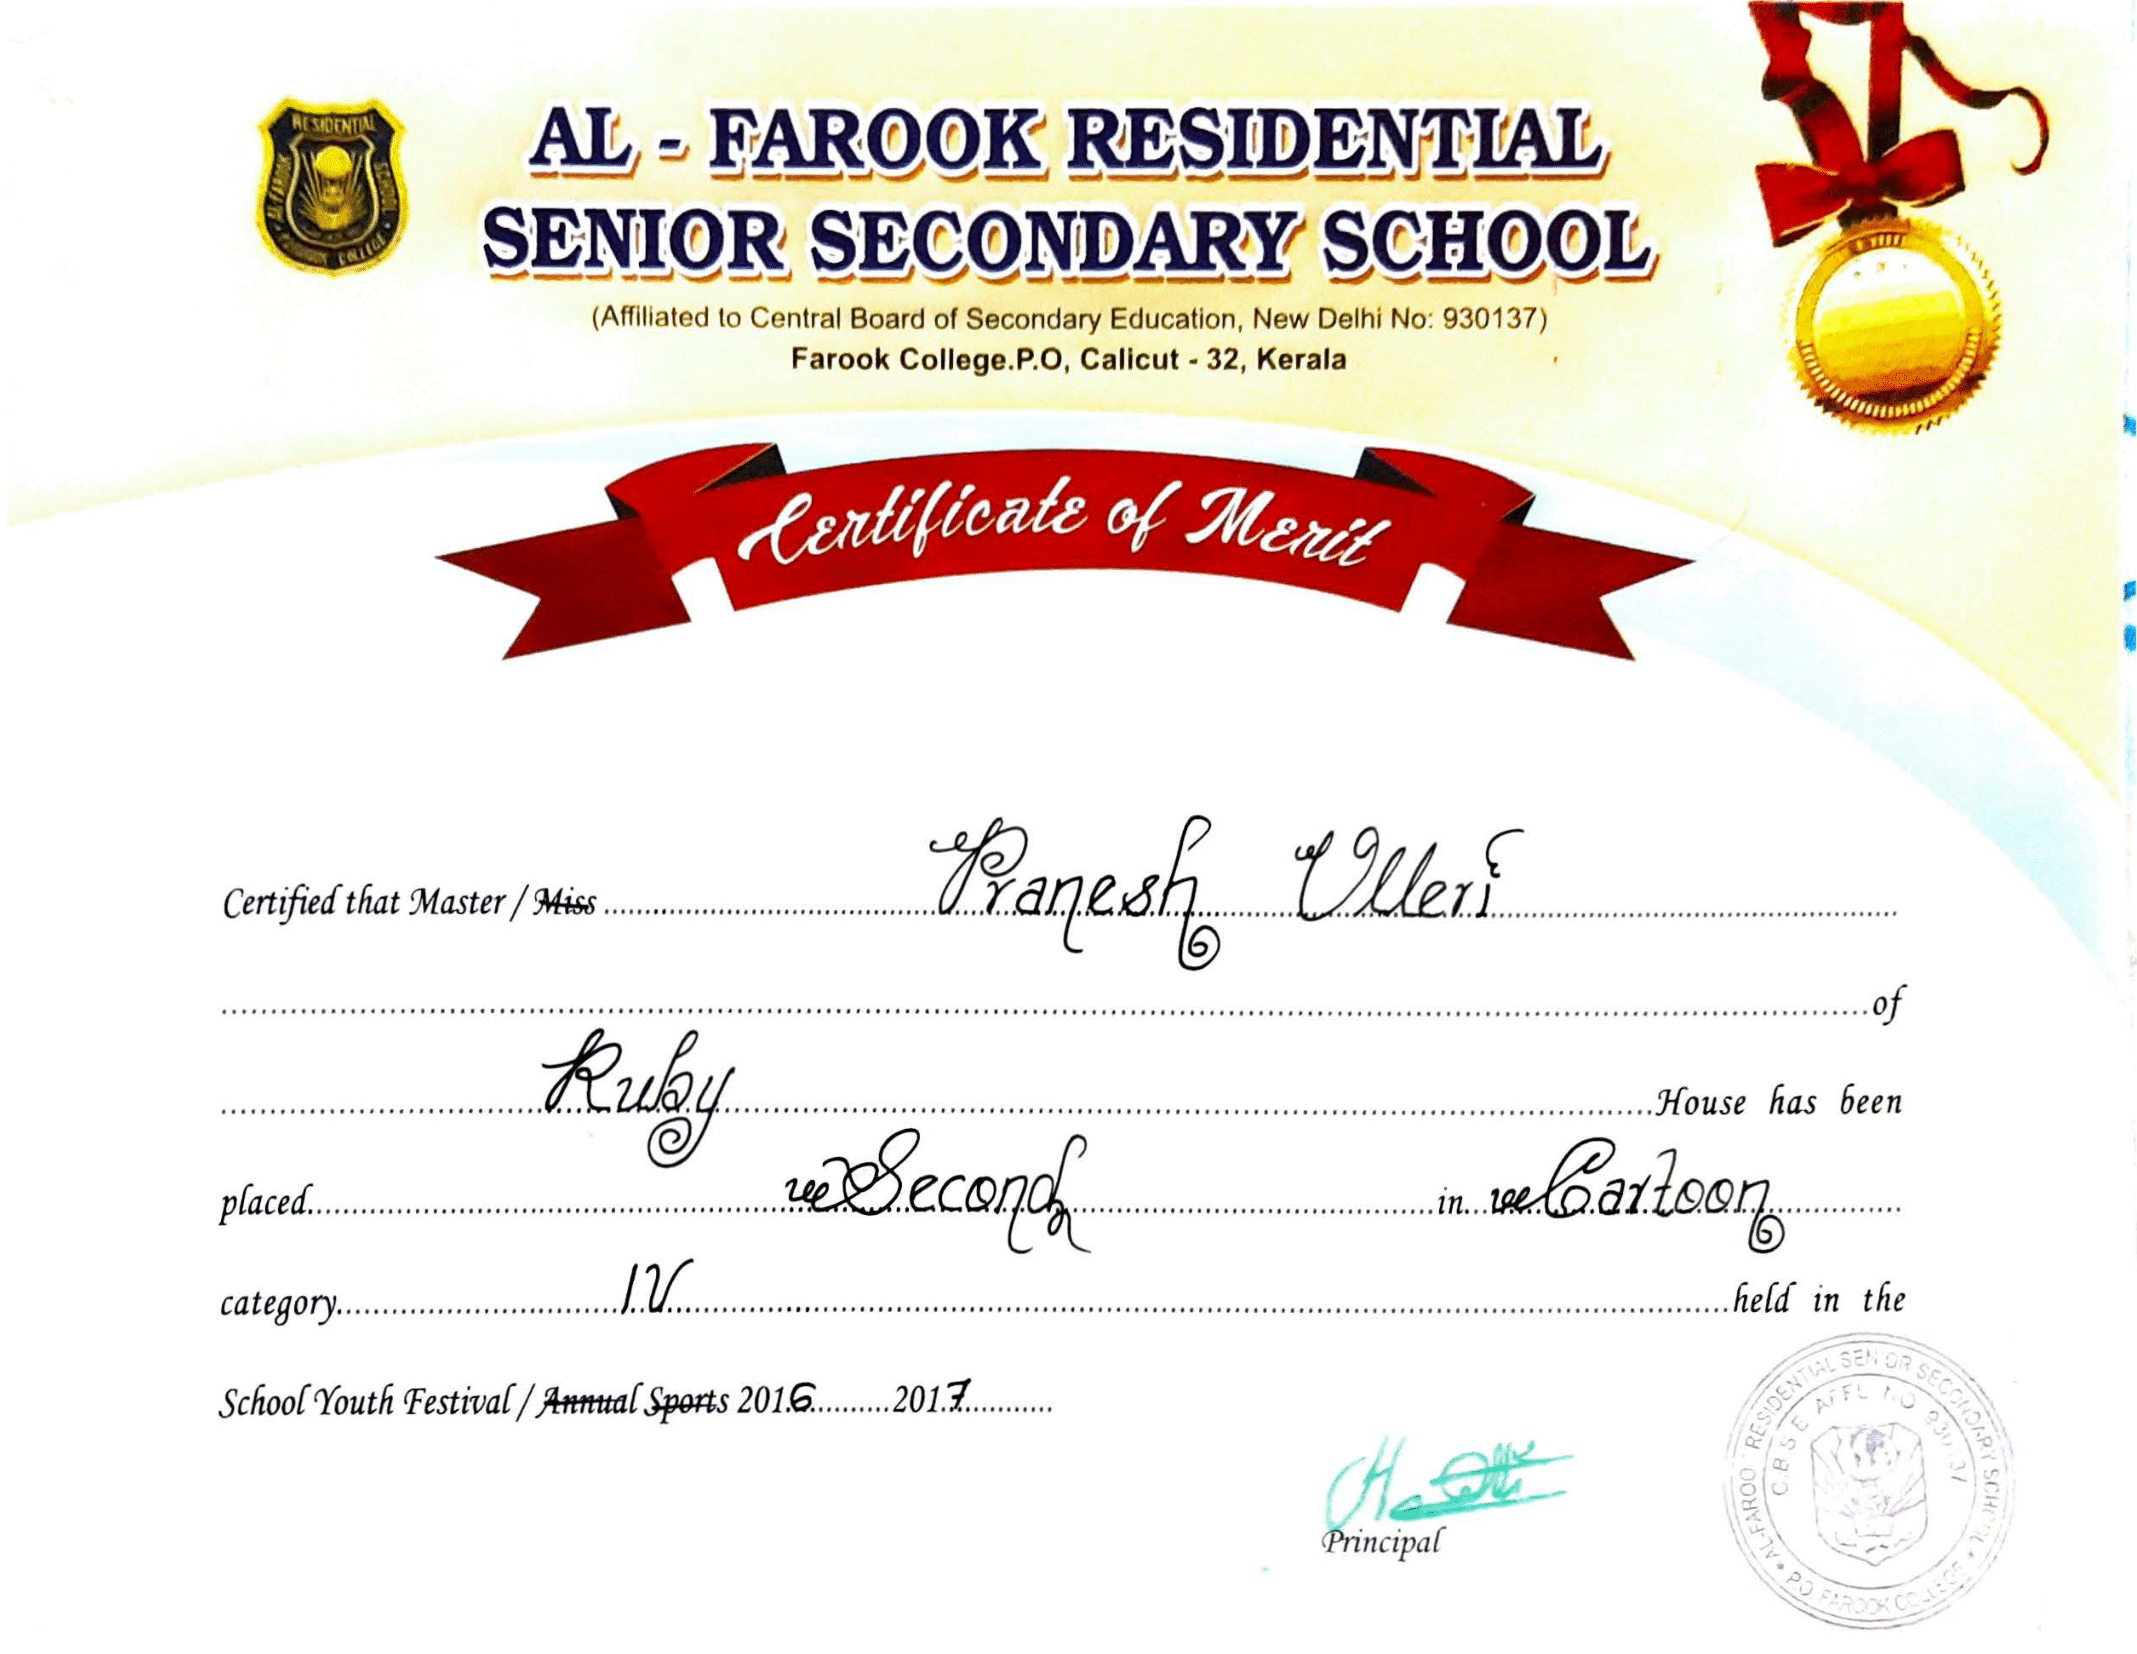 RESIDENTIAL
AL-FAROOK SCHOOL
FAROOK COLLEGE
AL - FAROOK RESIDENTIAL
SENIOR SECONDARY SCHOOL
(Affiliated to Central Board of Secondary Education, New Delhi No: 930137)
Farook College.P.O, Calicut - 32, Kerala
Certificate of Merit
Certified that Master / Miss Pranesh Ulleri
of
Ruby House has been
placed Second in Cartoon
category IV held in the
School Youth Festival / Annual Sports 2016 2017
Principal
AL-FAROO RESIDENTIAL SENIOR SECONDARY SCHOOL
C.B.S.E AFFL NO 930137
P.O. FAROOK COLLEGE